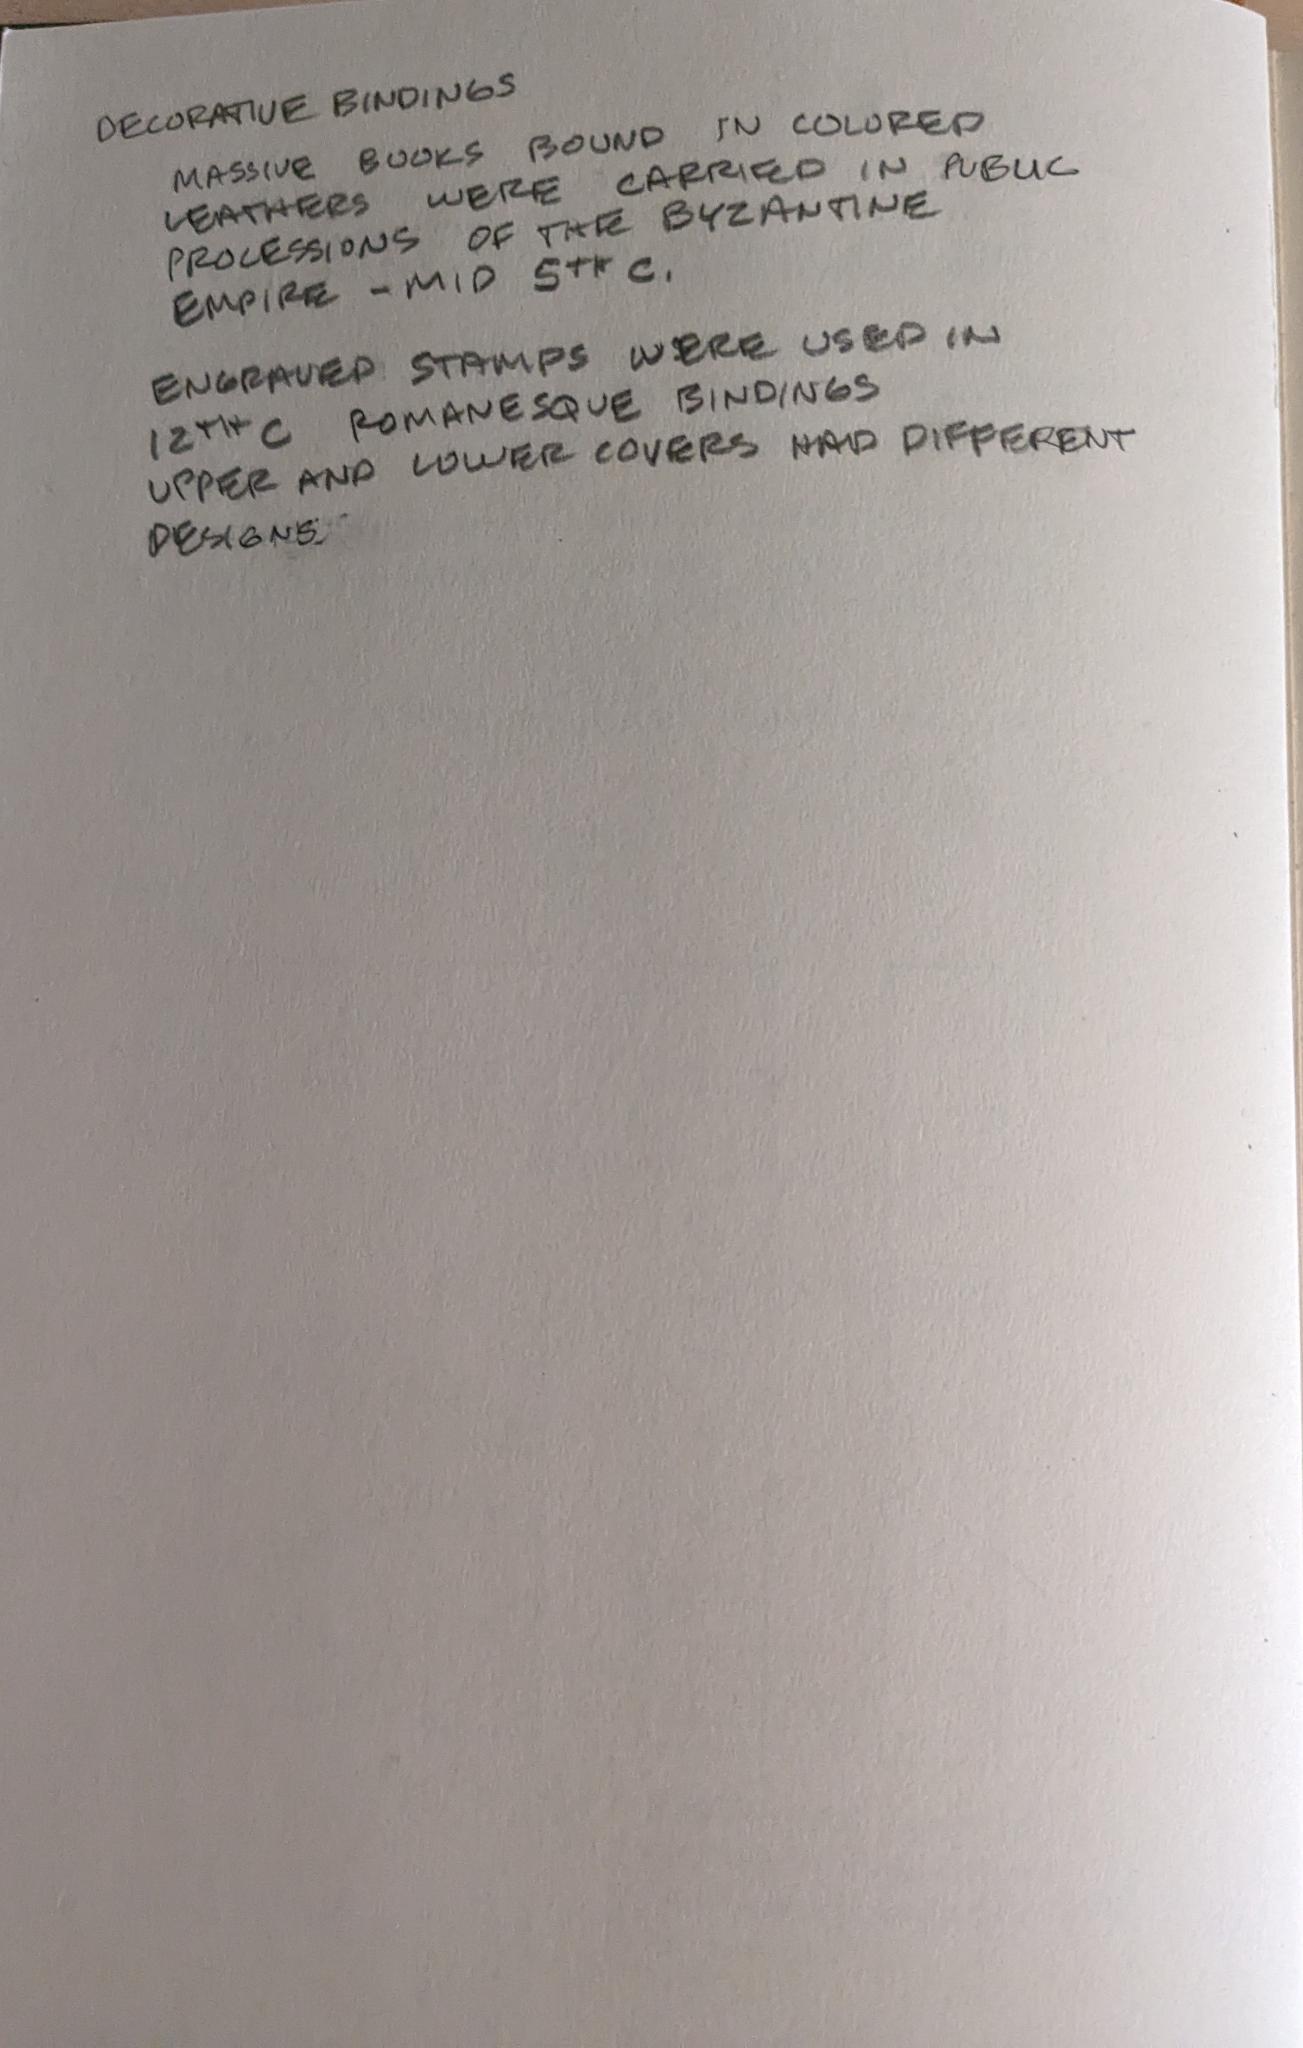 DECORATIVE BINDINGS
MASSIVE BOOKS BOUND IN COLORED
LEATHERS WERE CARRIED IN PUBLIC
PROCESSIONS OF THE BYZANTINE
EMPIRE - MID 5TH C.
ENGRAVED STAMPS WERE USED IN
12TH C ROMANESQUE BINDINGS
UPPER AND LOWER COVERS HAD DIFFERENT
DESIGNS.